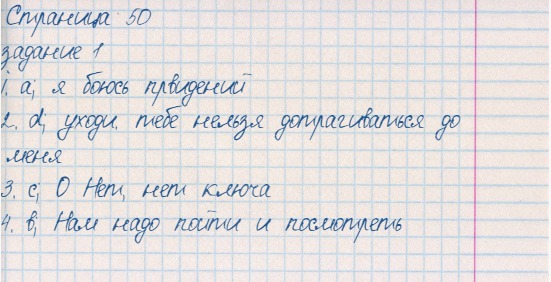 Страница 50
задание 1
1. a; я боюсь првидений
2. d; уходи, тебе нельзя дотрагиваться до
меня
3. c; О Нет, нет ключа
4. b; Нам надо пойти и посмотреть